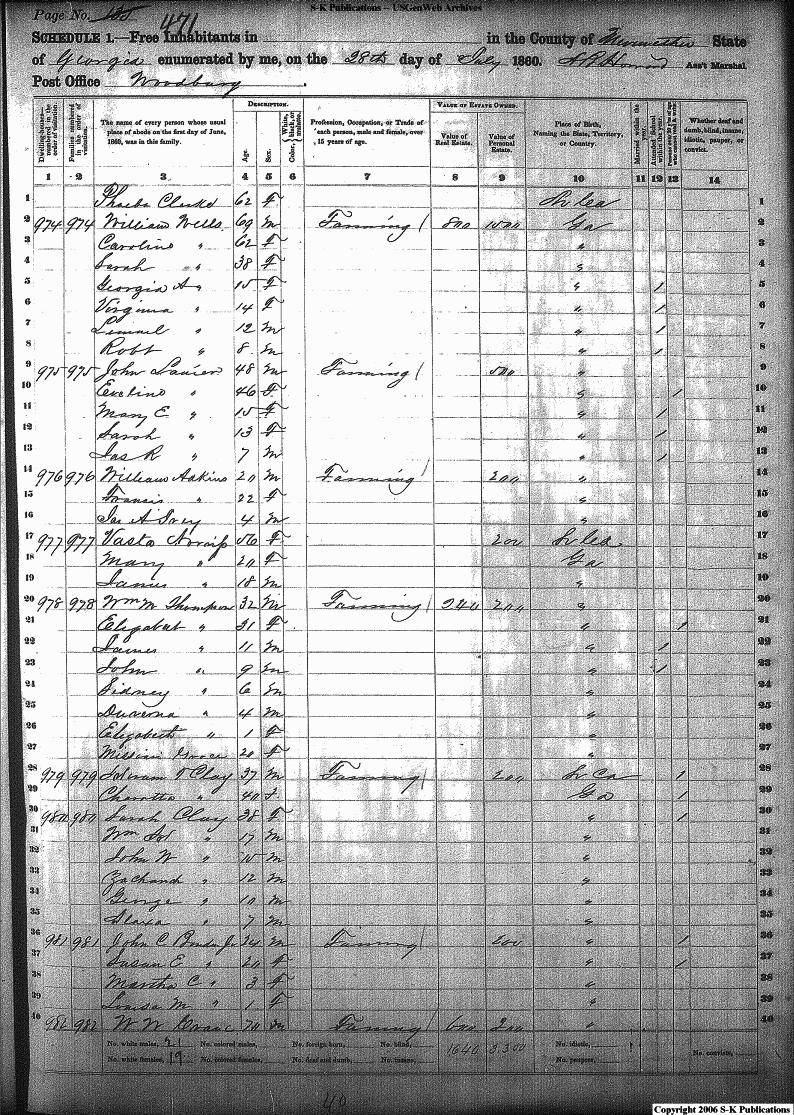 S-K Publications – USGenWeb Archives
Page No. 135
471
SCHEDULE 1.—Free Inhabitants in in the County of Meriwether State
of Georgia enumerated by me, on the 28th day of July 1860. Ass't Marshal
Post Office Woodbury
Dwelling-houses numbered in the order of visitation.
Families numbered in the order of visitation.
The name of every person whose usual place of abode on the first day of June, 1860, was in this family.
DESCRIPTION.
Age.
Sex.
Color, White, black, or mulatto.
Profession, Occupation, or Trade of each person, male and female, over 15 years of age.
VALUE OF ESTATE OWNED.
Value of Real Estate.
Value of Personal Estate.
Place of Birth, Naming the State, Territory, or Country.
Married within the year.
Attended School within the year.
Persons over 20 y'rs of age who cannot read & write.
Whether deaf and dumb, blind, insane, idiotic, pauper, or convict.
1 2 3 4 5 6 7 8 9 10 11 12 13 14
1 62 F 1
2 974 974 William Wells 69 m Farming / 800 1500 Ga 2
3 Caroline " 62 F " 3
4 Sarah " 38 F " 4
5 Georgia A " 15 F " / 5
6 Virginia " 14 F " / 6
7 Lemuel " 12 m " / 7
8 Robt " 8 m " / 8
9 975 975 John 48 m Farming / 500 " 9
10 Eveline " 46 F " / 10
11 Mary E " 15 F " / 11
12 Sarah " 13 F " / 12
13 Jas R " 7 m " / 13
14 976 976 William Adkins 20 m Farming / 200 " 14
15 Francis " 22 F " 15
16 Jas A 4 m " 16
17 977 977 56 F 200 17
18 Mary " 20 F Ga 18
19 James " 18 m " 19
20 978 978 Wm M Thompson 32 m Farming / 240 200 " 20
21 Elizabeth " 31 F " / 21
22 James " 11 m " / 22
23 John " 9 m " / 23
24 Sidney " 6 m " 24
25 " 4 m " 25
26 Elizabeth " 1 F " 26
27 20 F " 27
28 979 979 Hiram T Clay 37 m Farming / 200 / 28
29 " 40 F Ga / 29
30 980 980 Sarah Clay 38 F " / 30
31 Wm " 17 m " 31
32 John W " 15 m " 32
33 " 12 m " 33
34 George " 10 m " 34
35 " 7 m " 35
36 981 981 John C Jr 24 m Farming / 200 " / 36
37 Susan E " 20 F " / 37
38 Martha C " 3 F " 38
39 Louisa M " 1 F " 39
40 982 982 W W 70 m Farming / 600 200 " 40
No. white males, 21 No. colored males, No. foreign born, No. blind, 1640 3.300 No. idiotic, No. convicts,
No. white females, 19 No. colored females, No. deaf and dumb, No. insane, No. paupers,
40
Copyright 2006 S-K Publications